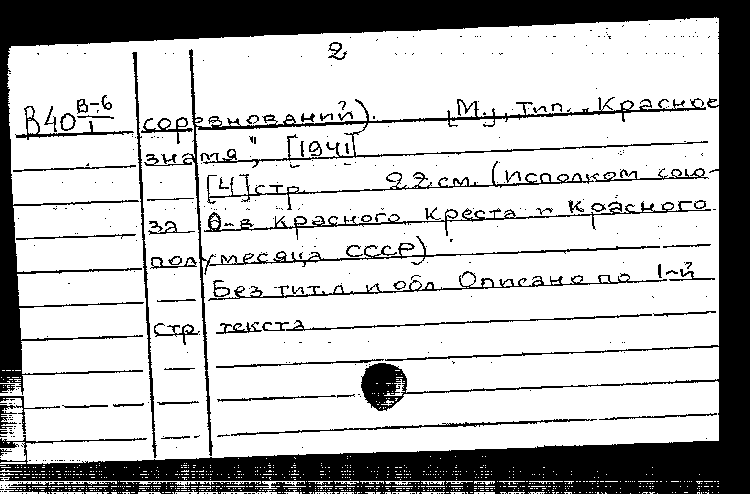 2
В40 В-6/1 соревнований). [М.], тип. „Красное
знамя", [1941]
[4] стр. 22 см. (Исполком сою-
за О-в Красного Креста и Красного
полумесяца СССР)
Без тит. л. и обл. Описано по 1-й
стр. текста